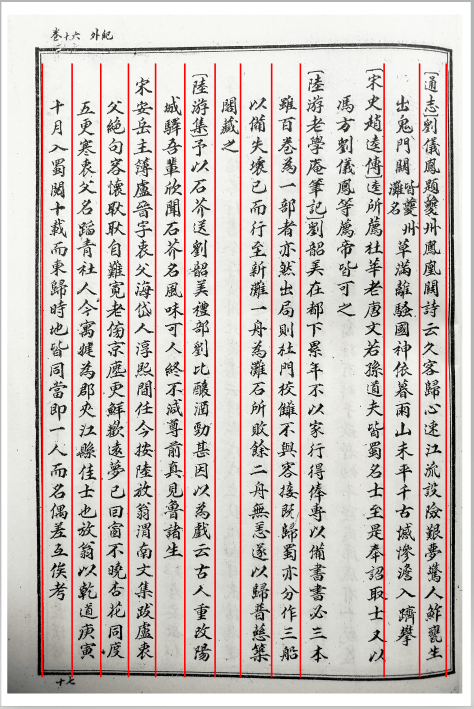 卷十六 外紀
[通志]劉儀鳳題夔州鳳凰關詩云久客歸心速江流設險艱夢驚人鮓甕生
出鬼門關灘皆夔州名草滿離騷國神依暮雨山未平千古憾慘澹入躋攀
[宋史趙逵傳]逵所薦杜莘老唐文若孫道夫皆蜀名士至是奉詔取士又以
馮方劉儀鳳等薦帝皆可之
[陸游老學庵筆記]劉韶美在都下累年不以家行得俸專以傳書書必三本
雖百卷為一部者亦然出局則杜門校讎不與客接既歸蜀亦分作三船
以備失壞已而行至新灘一舟為灘石所敗餘二舟無恙遂以歸普慈築
閣藏之
[陸游集]予以石芥送劉韶美禮部劉比釀酒勁甚因以為戲云古人重改陽
城驛吾輩欣聞石芥名風味可人終不減尊前真見魯諸生
宋安岳主簿盧晉字衷父海岱人淳熙間任今按陸放翁渭南文集跋盧衷
父絕句客懷耿耿自難寬老傍京塵更鮮歡遠夢已回窗不曉杏花同度
五更寒衷父名蹈青社人今寓犍為郡夾江縣佳士也放翁以乾道庚寅
十月入蜀閱十載而東歸時地皆同當即一人而名偶差互俟考
十七